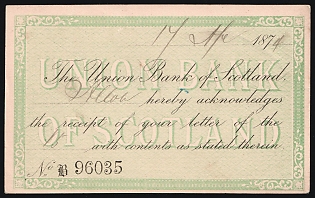 17 Ap 1874
UNION BANK
The Union Bank of Scotland.
Alloa hereby acknowledges
the receipt of your letter of the
OF SCOTLAND
with contents as stated therein.
No B 96035